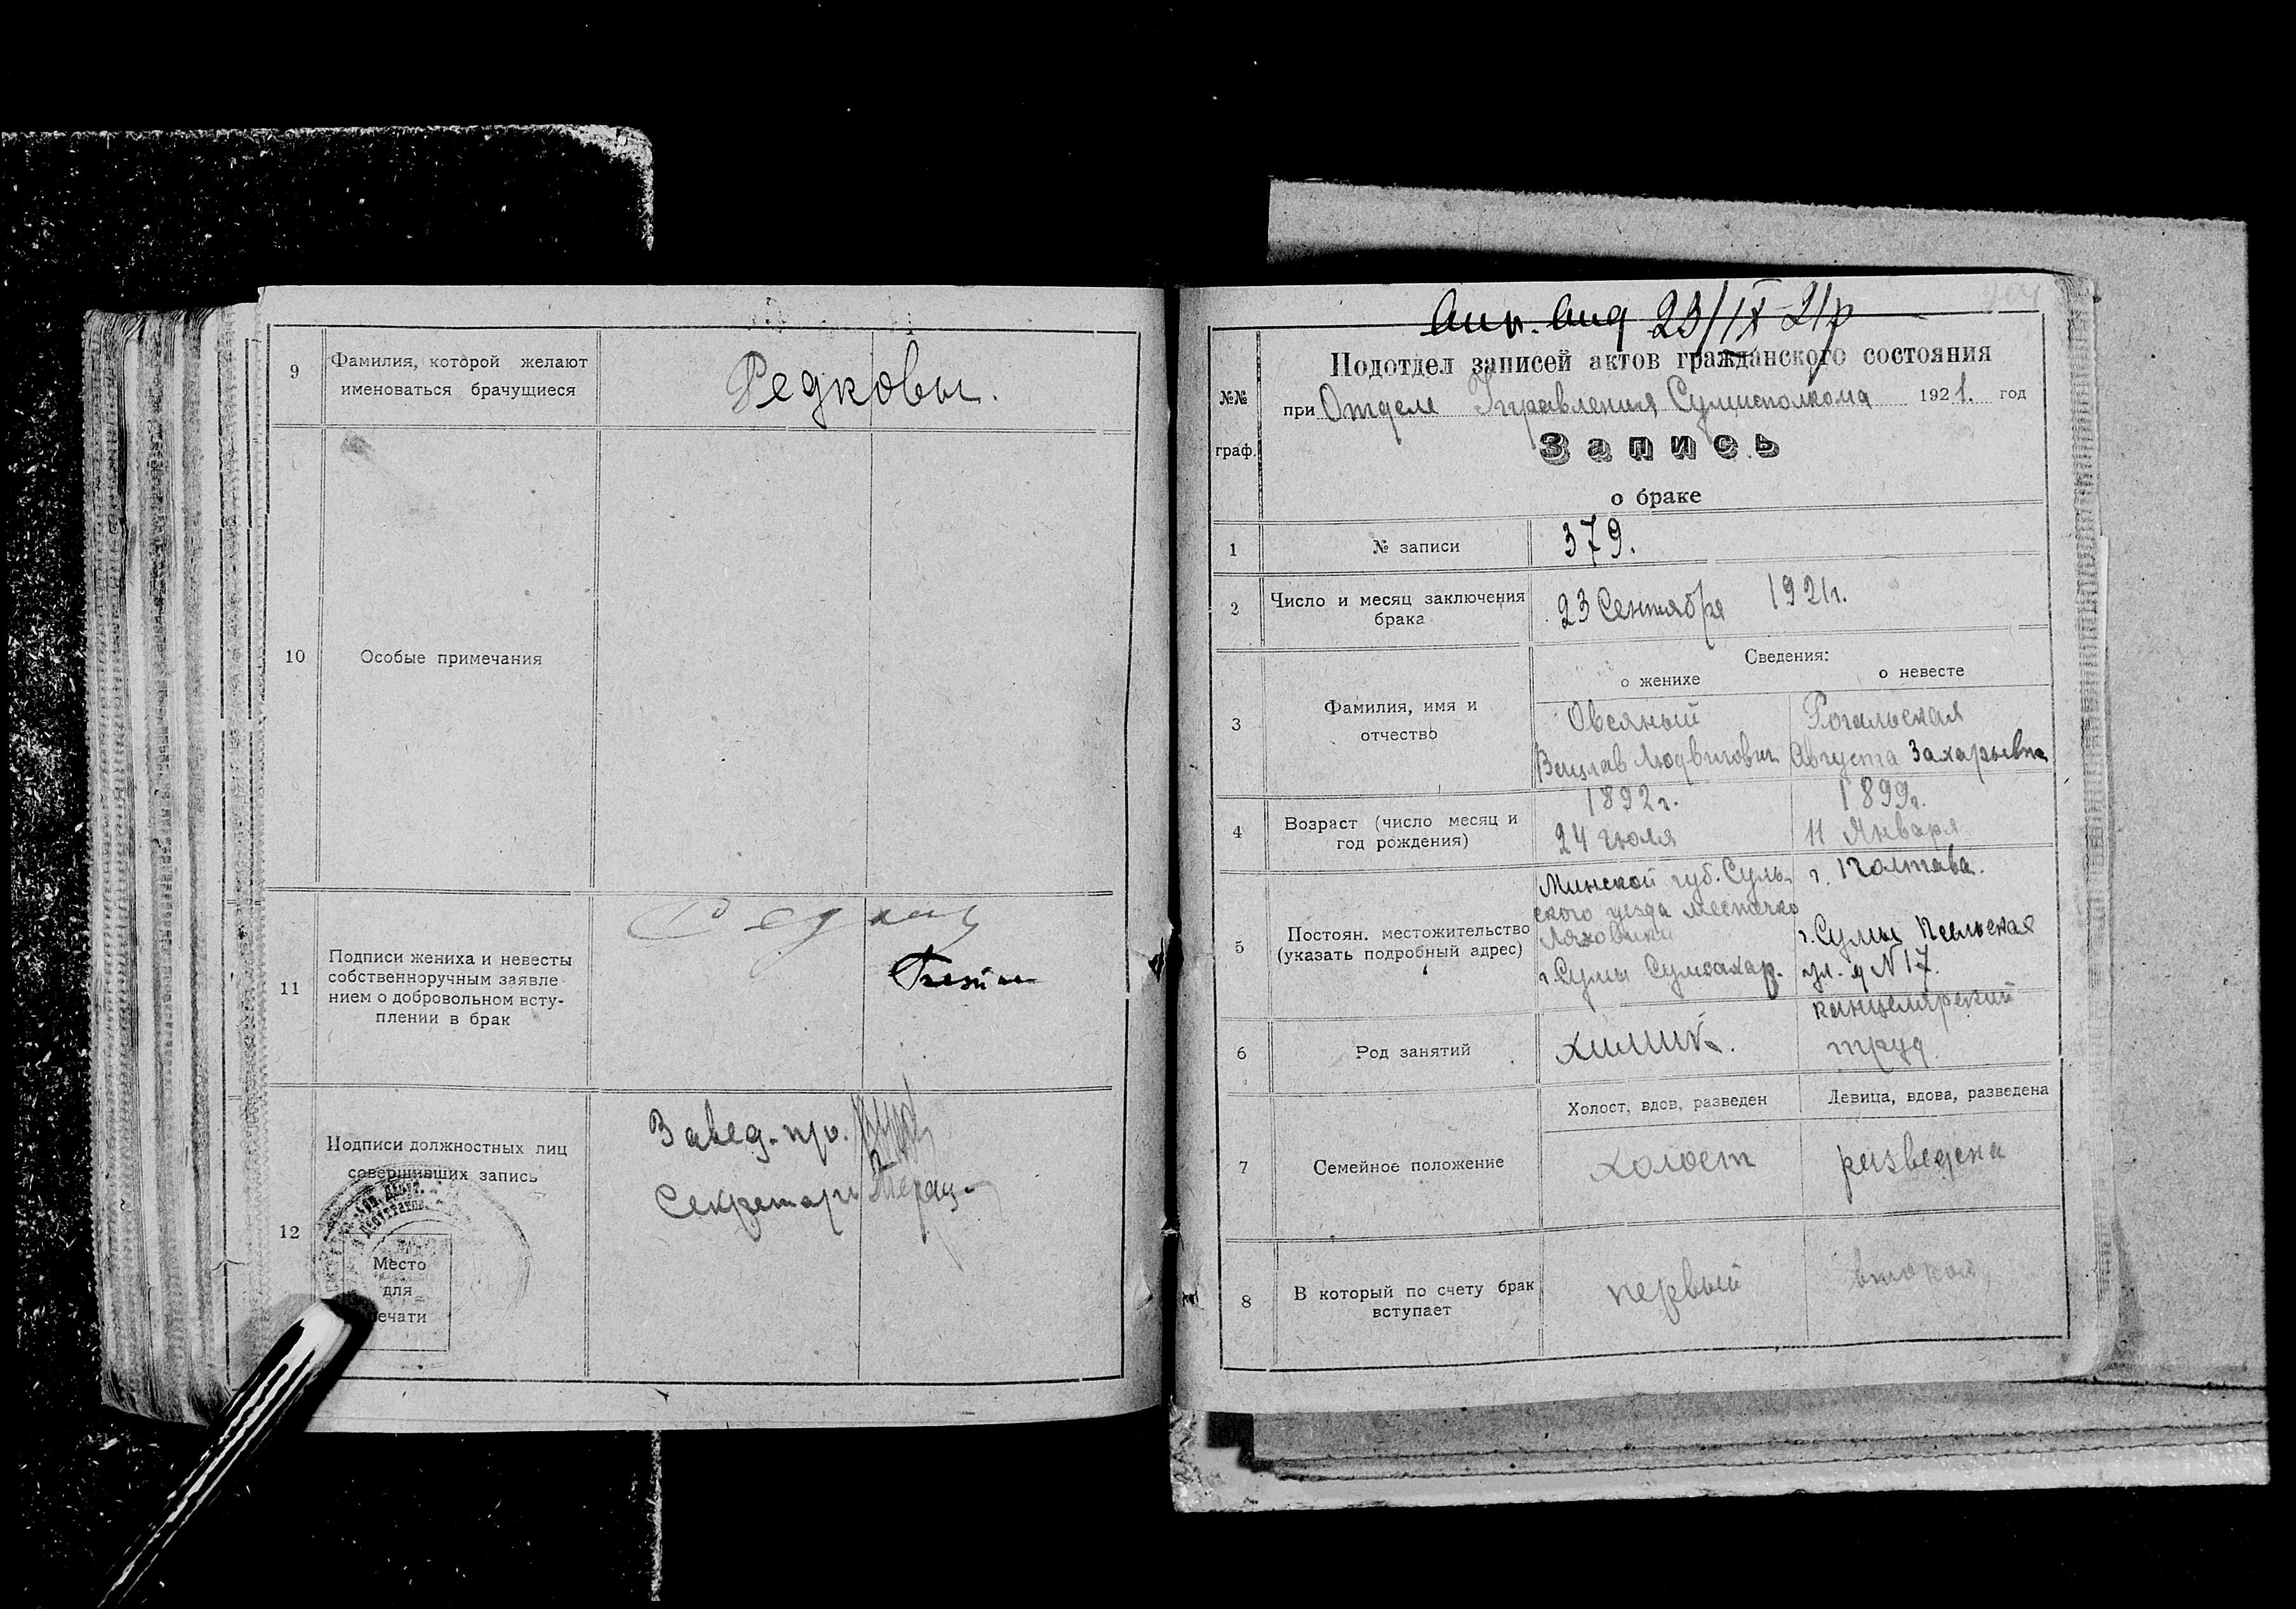 9
Фамилия, которой желают
именоваться брачущиеся
Редковы.
10
Особые примечания
11
Подписи жениха и невесты
собственноручным заявле-
нием о добровольном всту-
плении в брак
12
Подписи должностных лиц
совершивших запись
Завед. п/о.
Секретарь
Место
для
печати
23/IX 21р
Подотдел записей актов гражданского состояния
№№
граф.
при Отделе Управления Сумисполкома 1921. год
Запись
о браке
1
№ записи
379.
2
Число и месяц заключения
брака
23 Сентября 1921г.
Сведения:
о женихе
о невесте
3
Фамилия, имя и
отчество
Овсяный
Вацлав Людвигович
Рогальская
Августа Захарьевна
4
Возраст (число месяц и
год рождения)
1892 г.
24 июля
1899г.
11 Января
5
Постоян. местожительство
(указать подробный адрес)
Минской губ.
ского уезда местечко
Ляховичи
г. Сумы Сумсахар.
г. Полтава.
г. Сумы Псельская
ул. д N 17.
6
Род занятий
химик.
канцелярский
труд
7
Семейное положение
Холост, вдов, разведен
Девица, вдова, разведена
холост
разведена
8
В который по счету брак
вступает
первый
второй